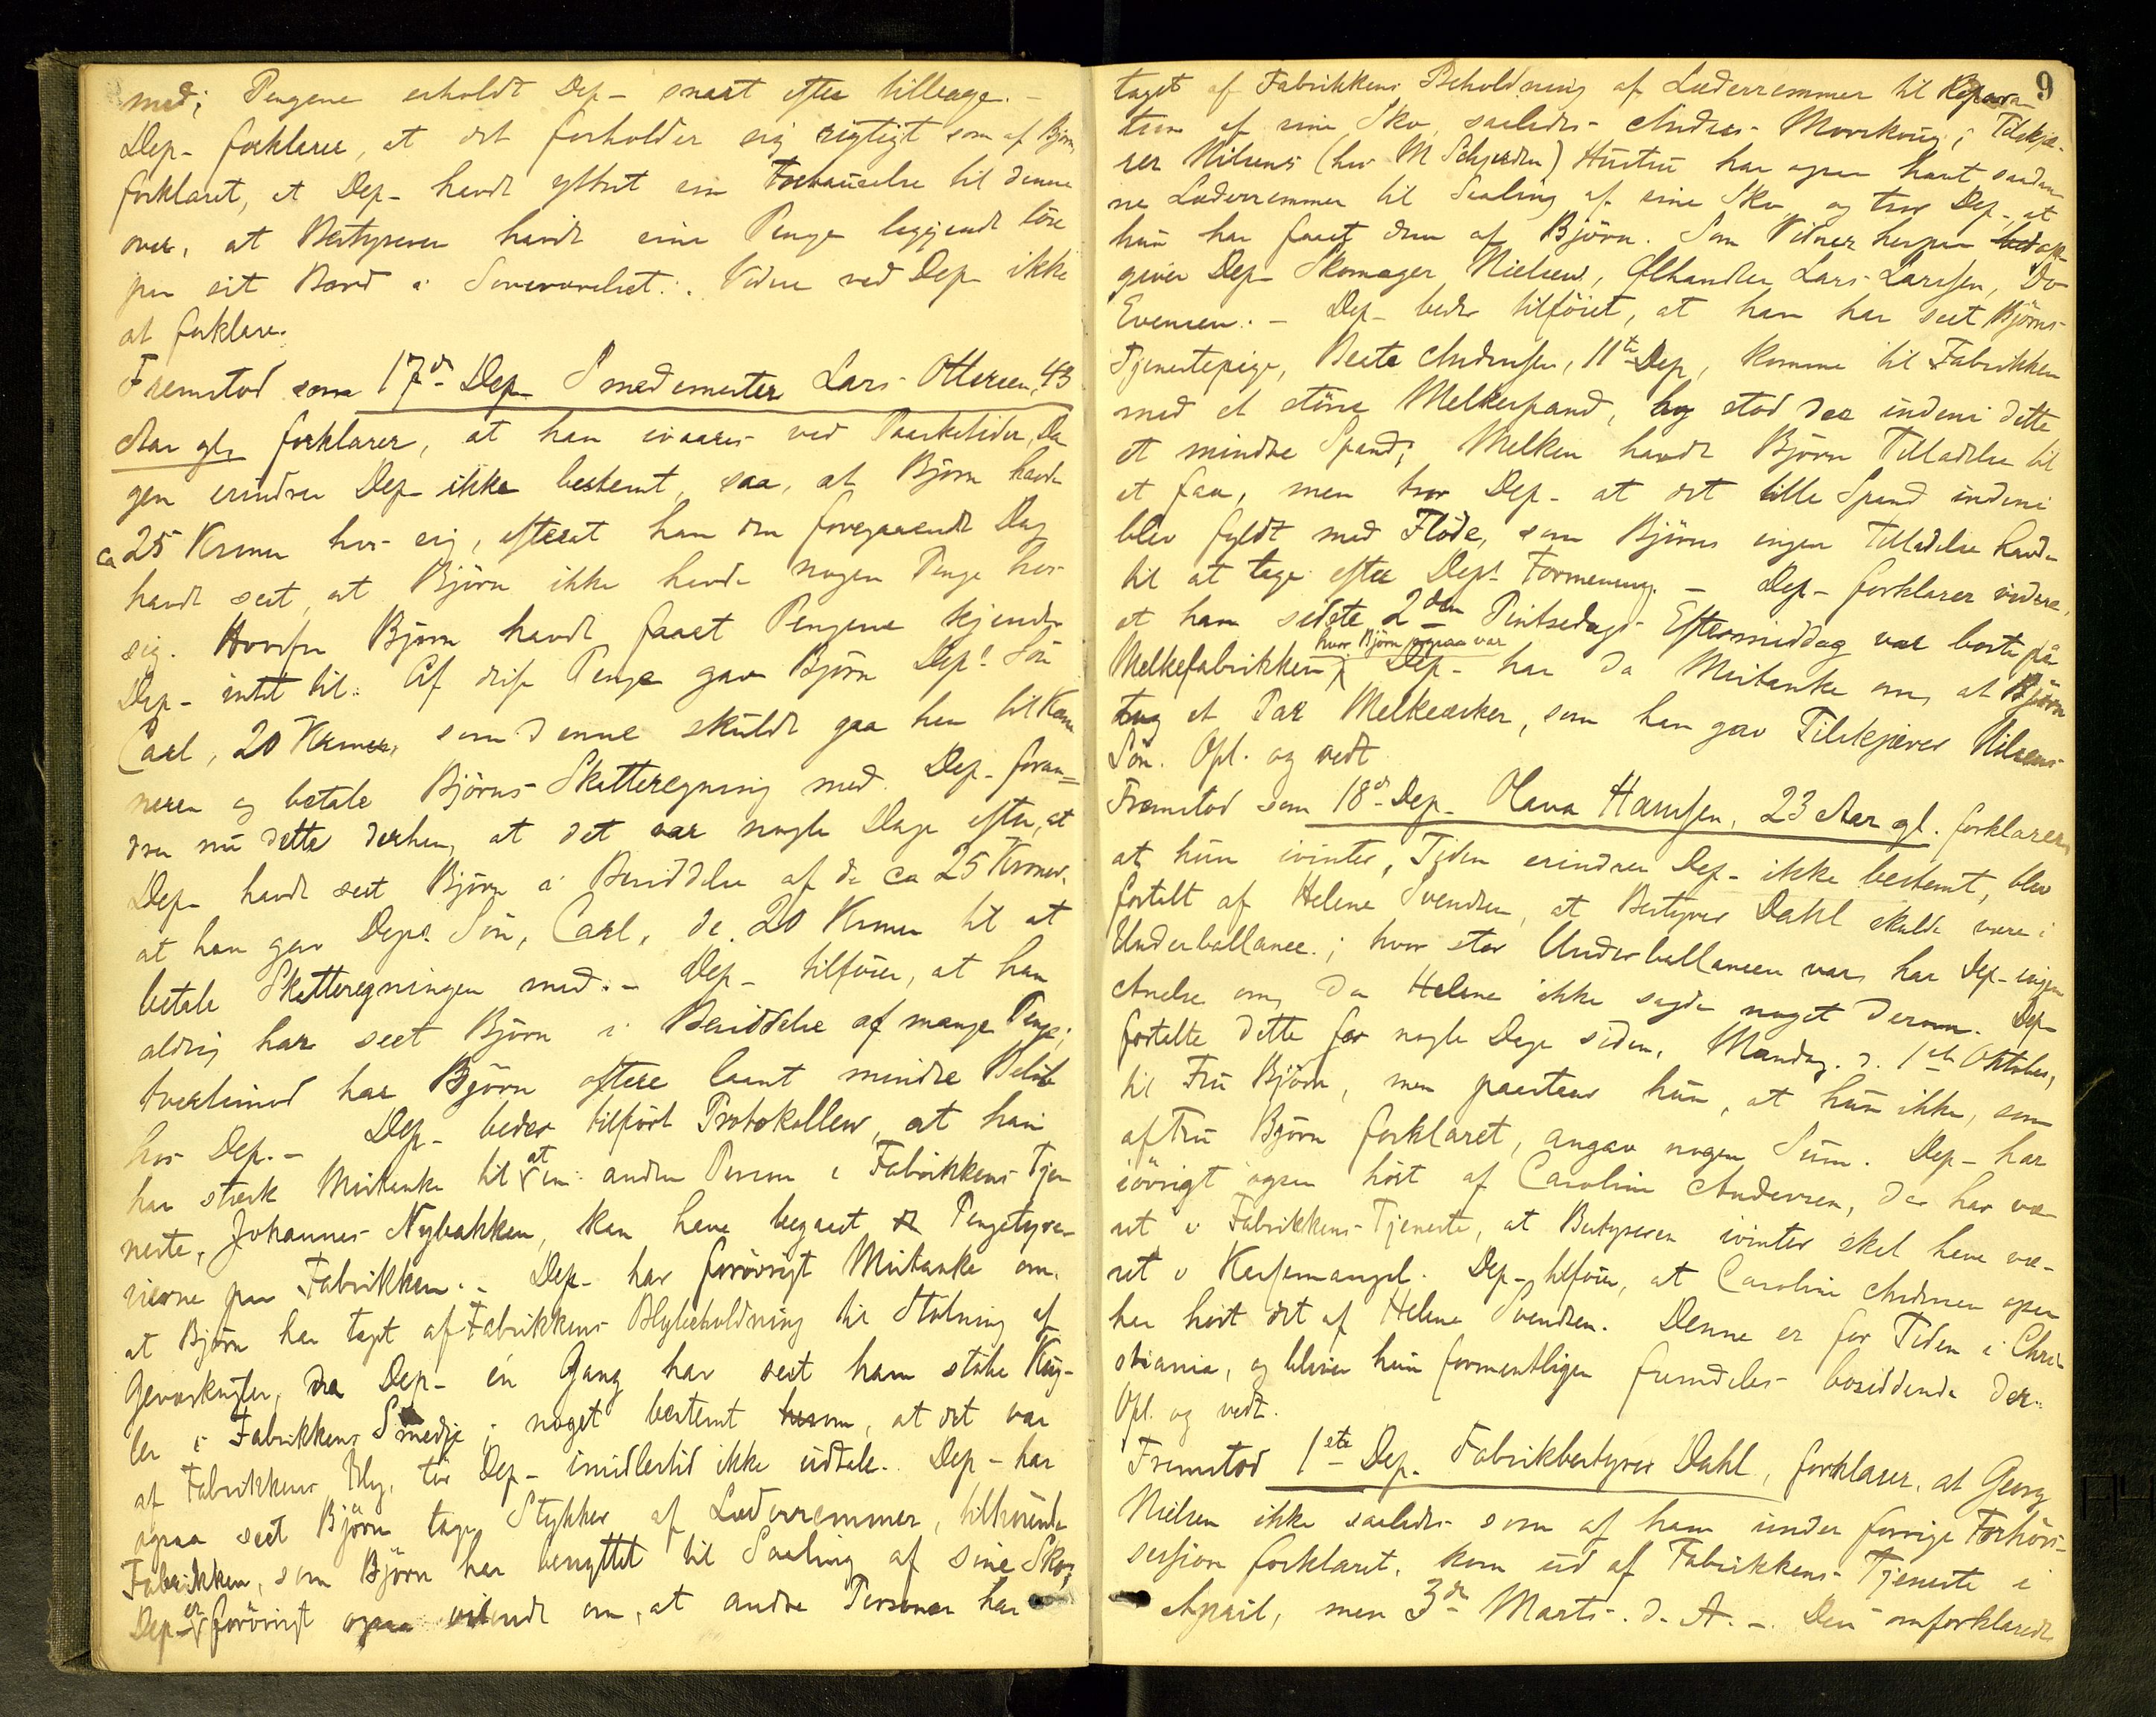 med; Pengene erholdt Dep- snart efter tilbage. -
Dep- forklarer, at det forholder sig rigtigt som af Bjørn
forklaret, at Dep- havde yttret sin Forbauselse til denne
over, at Bestyreren havde sine Penge liggende løse
paa sit Bord i Soveværelset. Videre ved Dep- ikke
at forklare.
Fremstod som 17de Dep- Smedemester Lars Ottersen, 43
Aar gl. forklarer, at han ivaares ved Paasketider, Da
gen erindrer Dep- ikke bestemt, saa, at Bjørn havde
ca 25 Kroner hos sig, efterat han den foregaaende Dag
havde seet, at Bjørn ikke havde nogen Penge hos
sig. Hvorfra Bjørn havde faaet Pengene kjender
Dep- intet til. Af disse Penge gav Bjørn Deps Søn
Carl, 20 Kroner, som denne skulde gaa hen til Kæm
neren og betale Bjørns Skatteregning med. Dep- foran=
drer nu dette derhen, at det var nogle Dage efter, at
Dep- havde seet Bjørn i Besiddelse af de ca 25 Kroner,
at han gav Deps Søn, Carl, de 20 Kroner til at
betale Skatteregningen med. - Dep- tilføier, at han
aldrig har seet Bjørn i Besiddelse af mange Penge;
tvertimod har Bjørn oftere laant mindre Beløb
hos Dep. - Dep- beder tilført Protokollen, at han
har stærk Mistanke til at en anden Person i Fabrikkens Tje
neste, Johannes Nybakken, kan have begaaet Pengetyve
rierne paa Fabrikken. - Dep- har forøvrigt Mistanke om,
at Bjørn har taget af Fabrikkens Blybeholdning til Støbning af
Geværkugler, da Dep- én Gang har seet ham støbe Kug-
ler i Fabrikkens Smedje; noget bestemt herom, at det var
af Fabrikkens Bly, tør Dep- imidlertid ikke udtale. Dep- har
ogsaa seet Bjørn tage Stykker af Læderremmer, tilhørende
Fabrikken, som Bjørn har benyttet til Saaling af sine Sko;
Dep- er forøvrigt ogsaa vidende om, at andre Personer har
9
taget af Fabrikkens Beholdning af Læderremmer til Repara-
tion af sine Sko, saaledes Andreas Moveskoug; Tilskjæ-
rer Nilsens (hos M Schjerden) Hustru har ogsaa havt saadan
ne Læderremmer til Saaling af sine Sko, og tror Dep- at
hun har faaet dem af Bjørn. Som Vidner herpaa op
giver Dep- Skomager Nielsen, Ølhandler Lars Larssen, Do
Evensen. - Dep- beder tilføiet, at han har seet Bjørns
Tjenestepige, Beate Andersen, 11te Dep, komme til Fabrikken
med et større Melkespand, og stod der indeni dette
et mindre Spand; Melken havde Bjørn Tilladelse til
at faa, men tror Dep- at det lille Spand indeni
blev fyldt med Fløde, som Bjørns ingen Tilladelse havde
til at tage efter Deps Formening. - Dep- forklarer videre,
at han sidste 2den Pintsedags Eftermiddag var borte på
Melkefabrikken, hvor Bjørn ogsaa var
Dep- har da Mistanke om, at Bjørn
tog et Par Melkeæsker, som han gav Tilskjærer Nilsens
Søn. Opl. og vedt.
Fremstod som 18de Dep- Olava Hansen, 23 Aar gl. forklarer,
at hun ivinter, Tiden erindrer Dep- ikke bestemt, blev
fortalt af Helene Svendsen, at Bestyrer Dahl skulde være i
Underballance; hvor stor Underballancen var, har Dep- ingen
Anelse om, da Helene ikke sagde noget derom. Dep-
fortalte dette for nogle Dage siden, Mandag d. 1ste Oktober,
til Fru Bjørn, men paastaar hun, at hun ikke, som
af Fru Bjørn forklaret, angav nogen Sum. Dep- har
iøvrigt ogsaa hørt af Caroline Andersen, der har væ
ret i Fabrikkens Tjeneste, at Bestyreren ivinter skal have væ-
ret i Kassemangel. Dep- tilføier, at Caroline Andersen ogsaa
har hørt det af Helene Svendsen. Denne er for Tiden i Chri
stiania, og bliver hun formentligen fremdeles boeiddende der.
Opl. og vedt.
Fremstod 1ste Dep. Fabrikbestyrer Dahl, forklarer, at Georg
Nielsen ikke saaledes som af ham under forrige Forhørs-
session forklaret, kom ud af Fabrikkens Tjeneste i
April, men 3de Marts d. A. - Den omforklarede